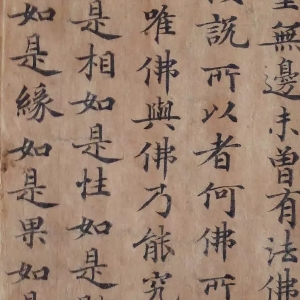 無邊未曾有法佛
說所以者何佛所
唯佛與佛乃能究
是相如是性如是
如是緣如是果如是